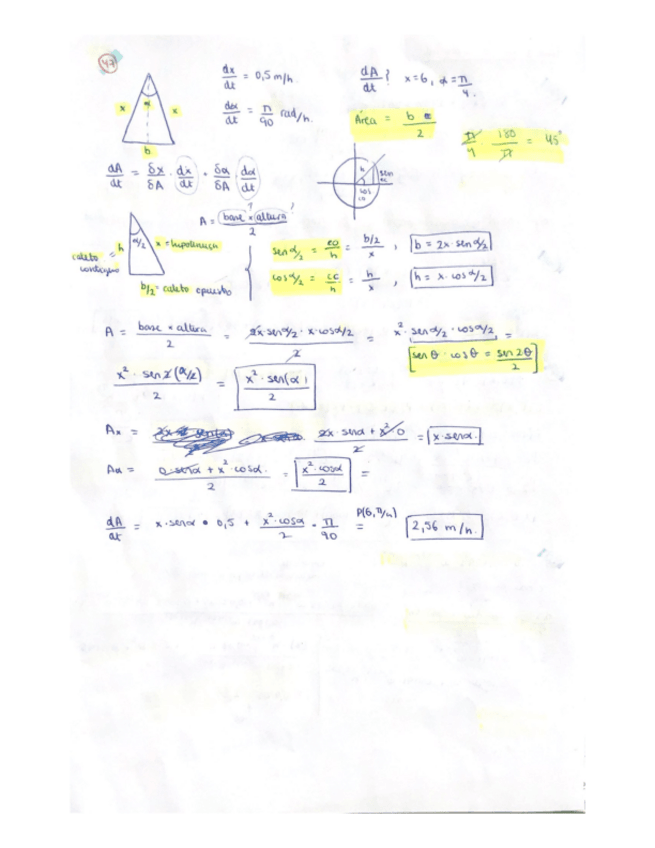 47
dx/dt = 0,5 m/h. dA/dt? x=6, α=π/4.
dα/dt = π/90 rad/h. Área = b /2
π/4 · 180/π = 45°
x α x
b
dA/dt = δx/δA · dx/dt + δα/δA · dα/dt
h sen cos
A = base × altura / 2
h α/2 x = hipotenusa
cateto contiguo
b/2 = cateto opuesto
sen α/2 = co/h = b/2 / x , b = 2x · sen α/2
cos α/2 = cc/h = h/x , h = x · cos α/2
A = base × altura / 2 = 2x · sen α/2 · x · cos α/2 / 2 = x² · sen α/2 · cos α/2 =
sen θ · cos θ = sen 2θ / 2
x² · sen 2 (α/2) / 2 = x² · sen(α) / 2
Ax = 2x · senα + x² · 0 / 2 = x · senα.
Aα = 0 · senα + x² · cosα. / 2 = x² · cosα / 2 =
dA/dt = x · senα · 0,5 + x² · cosα / 2 · π/90 = P(6, π/4) 2,56 m/h.